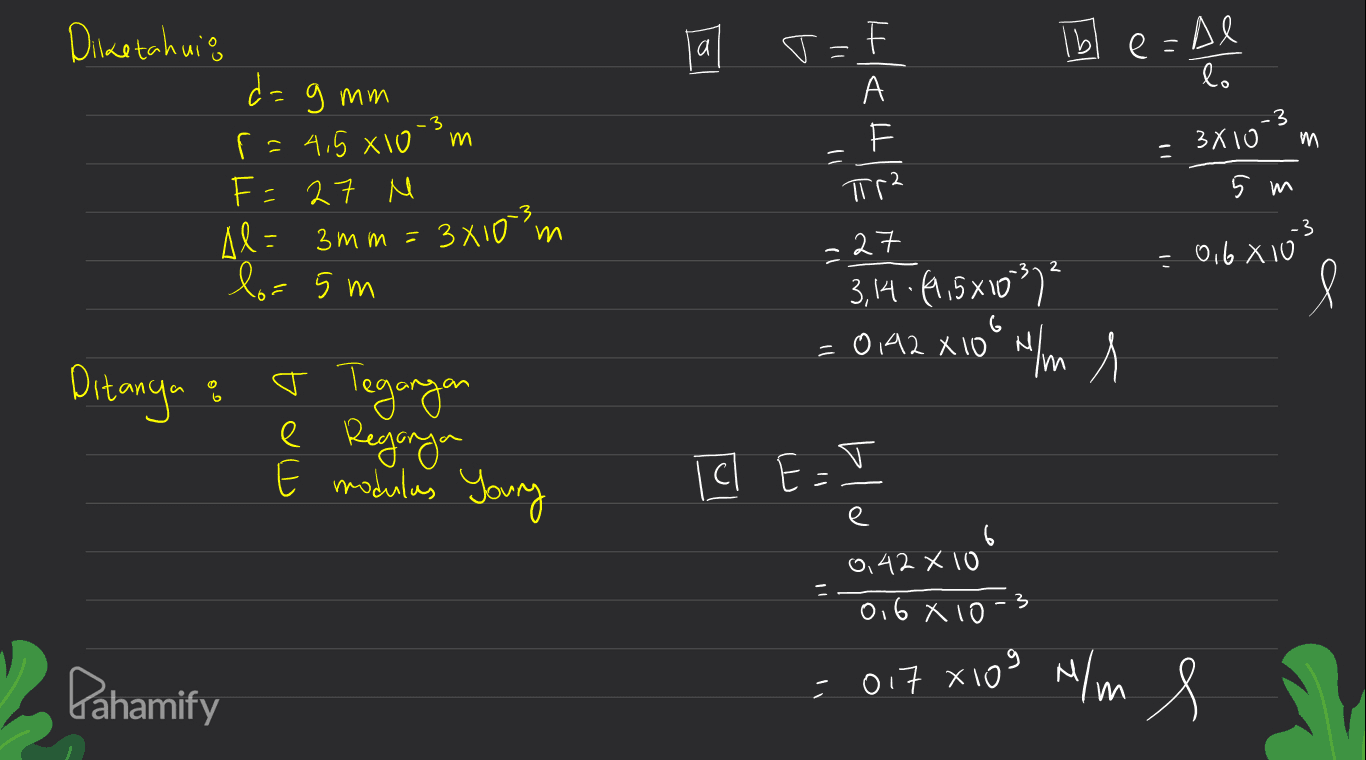 Diketahui:
d = 9 mm
r = 4,5 x 10⁻³ m
F = 27 N
Δl = 3 mm = 3 x 10⁻³ m
l₀ = 5 m
Ditanya: σ Tegangan
e Regangan
E modulus Young
a σ = F/A
= F/πr²
= 27/3,14 · (4,5 x 10⁻³)²
= 0,42 x 10⁶ N/m
b e = Δl/l₀
= 3 x 10⁻³ m/5 m
= 0,6 x 10⁻³
c E = σ/e
= 0,42 x 10⁶/0,6 x 10⁻³
= 0,7 x 10⁹ N/m
Pahamify